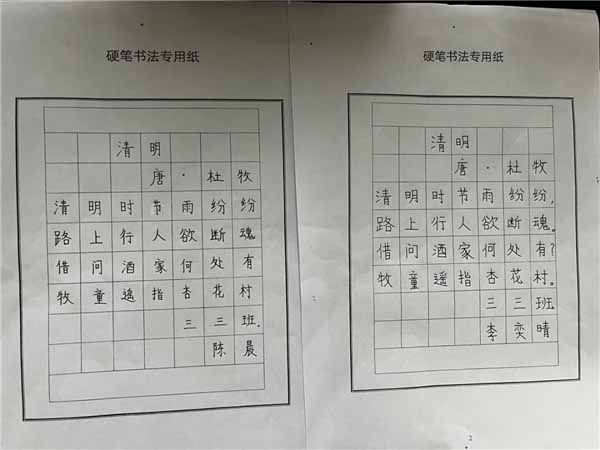 硬笔书法专用纸
清明
唐·杜牧
清明时节雨纷纷
路上行人欲断魂
借问酒家何处有
牧童遥指杏花村
三三班.
陈晨
硬笔书法专用纸
清明
唐·杜牧
清明时节雨纷纷,
路上行人欲断魂。
借问酒家何处有?
牧童遥指杏花村。
三三班
李奕晴
2